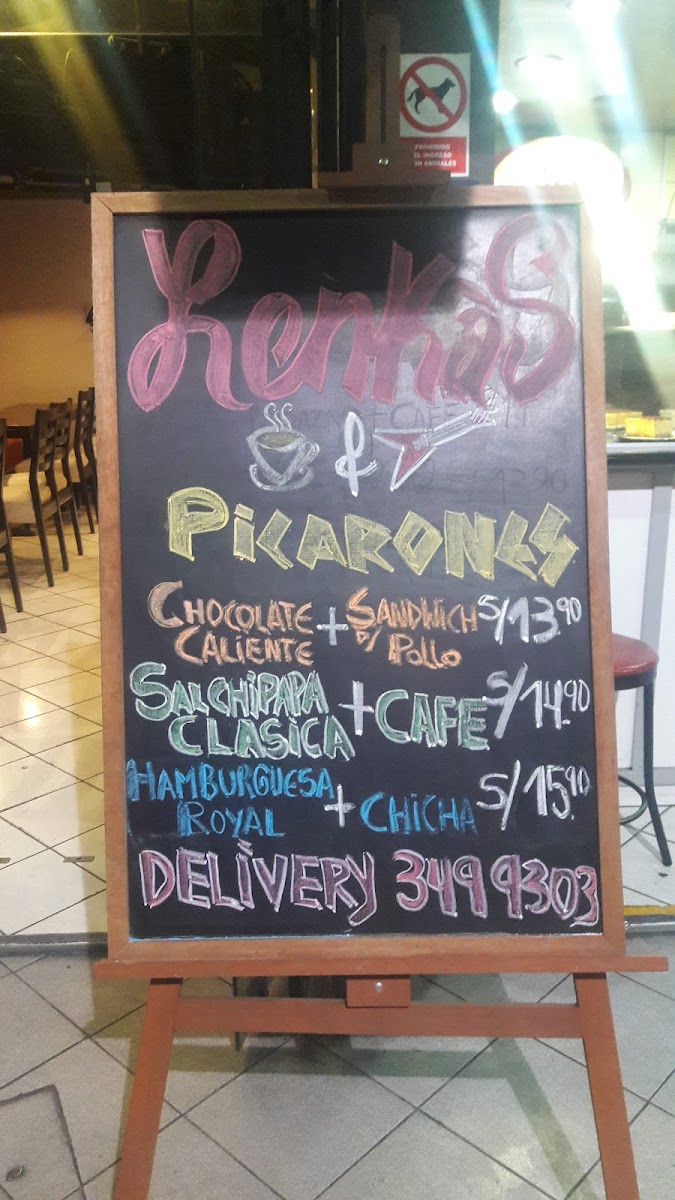 PROHIBIDO
EL INGRESO
CON ANIMALES
Lenkas
&
PICARONES
CHOCOLATE CALIENTE + SANDWICH D/ POLLO S/13.90
SALCHIPAPA CLASICA + CAFE S/14.90
HAMBURGUESA ROYAL + CHICHA S/15.90
DELIVERY 349 9303